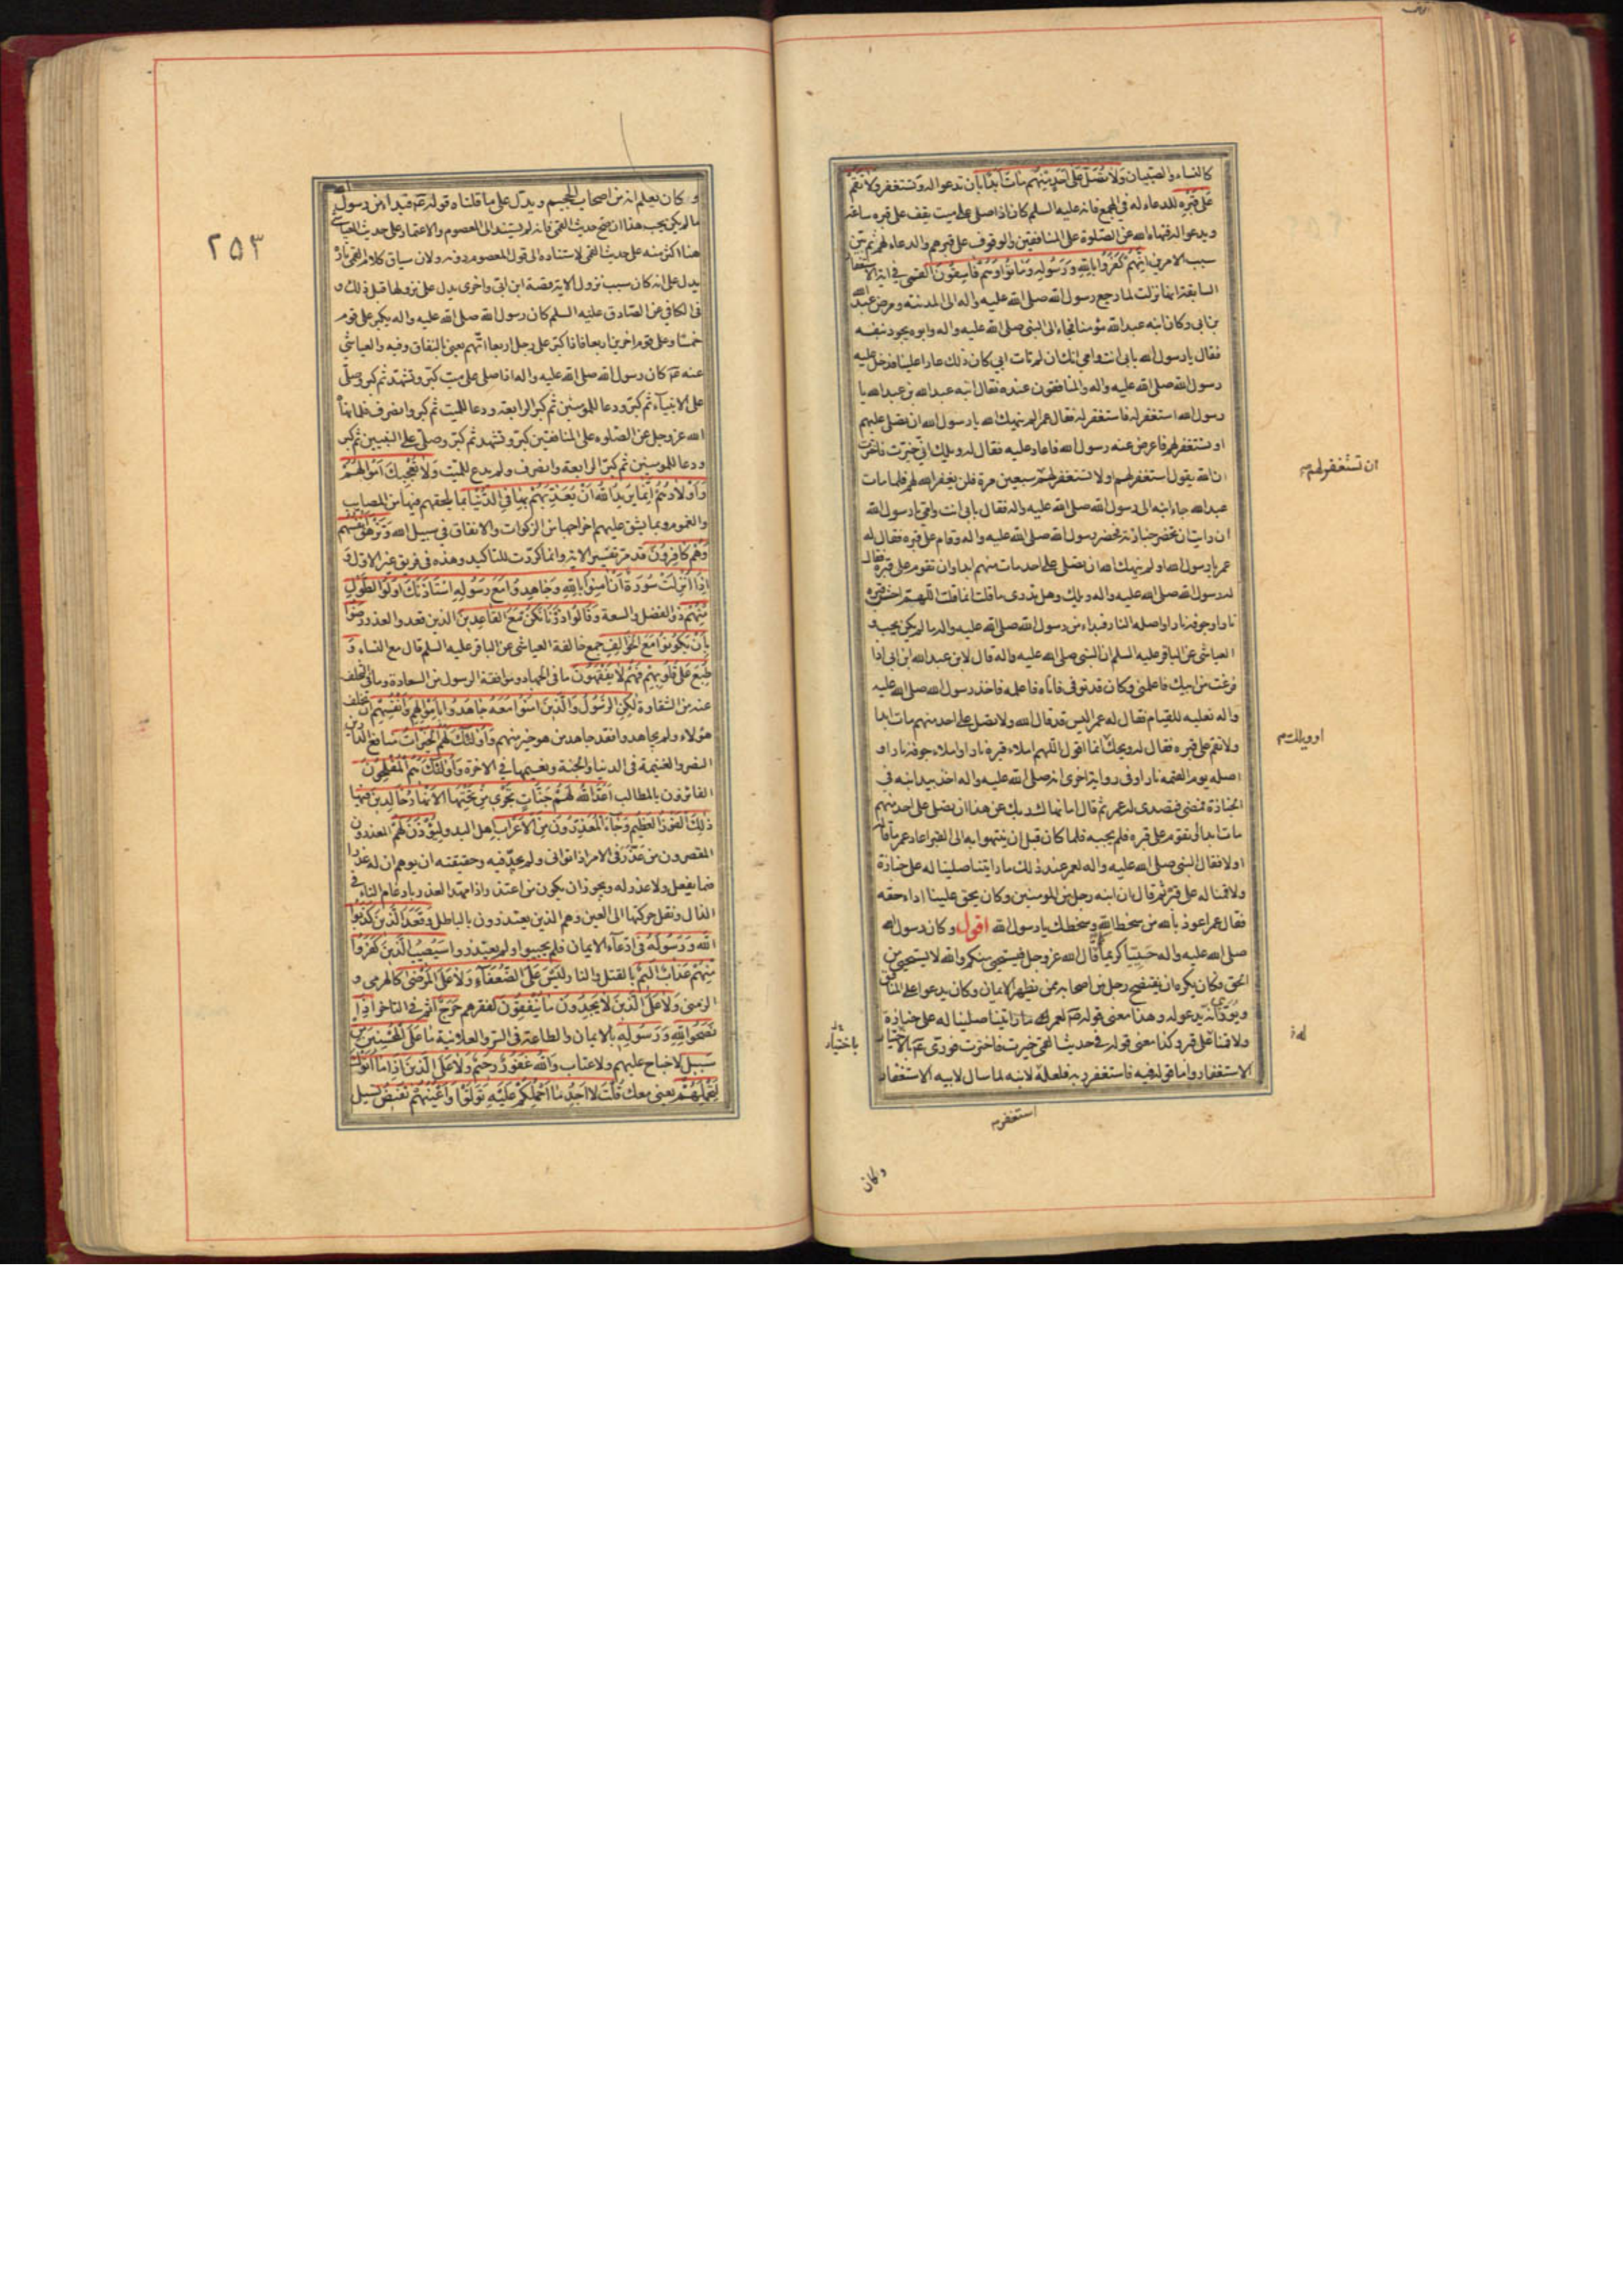 كالنساء والصبيان وَلَا تُصَلِّ عَلَى أَحَدٍ مِنْهُمْ مَاتَ أَبَدًا بان تدعو له وتستغفر وَلَا تَقُمْ
عَلَى قَبْرِهِ للدعاء له في المجمع فانه عليه السلم كان اذا صلى على ميت يقف على قبره ساعة
ويدعو له فنهاه الله عن الصلوة على المنافقين والوقوف على قبرهم والدعاء لهم ثم بين
سبب الامرين إِنَّهُمْ كَفَرُوا بِاللَّهِ وَرَسُولِهِ وَمَاتُوا وَهُمْ فَاسِقُونَ القمي في اية الاستغفار
السابقة انها نزلت لما رجع رسول الله صلى الله عليه واله الى المدينة ومرض عبد الله
بن ابي وكان ابنه عبد الله مؤمنا فجاء الى النبي صلى الله عليه واله وابوه يجود بنفسه
فقال يا رسول الله بابي انت وامي انك ان لم تات ابي كان ذلك عارا علينا فدخل عليه
رسول الله صلى الله عليه واله والمنافقون عنده فقال ابنه عبد الله بن عبد الله يا
رسول الله استغفر له فاستغفر له فقال عمر الم ينهك الله يا رسول الله ان تصلى عليهم
او تستغفر لهم فاعرض عنه رسول الله فاعاد عليه فقال له ويلك اني خيرت فاخترت
ان الله يقول استغفر لهم او لا تستغفر لهم سبعين مرة فلن يغفر الله لهم فلما مات
عبد الله جاء ابنه الى رسول الله صلى الله عليه واله فقال بابي انت وامي يا رسول الله
ان رايت ان تحضر جنازته فحضر رسول الله صلى الله عليه واله وقام على قبره فقال له
عمر يا رسول الله اولم ينهك الله ان تصلى على احد مات منهم ابدا وان تقوم على قبره فقال
له رسول الله صلى الله عليه واله ويلك وهل تدرى ما قلت انما قلت اللهم احش قبره
نارا وجوفه نارا واصله النار فبداء من رسول الله صلى الله عليه واله ما لم يكن يحب و
العياشي عن الباقر عليه السلم ان النبي صلى الله عليه واله قال لابن عبد الله ابن ابي اذا
فرغت من ابيك فاعلمني وكان قد توفى فاتاه فاعلمه فاخذ رسول الله صلى الله عليه
واله نعليه للقيام فقال له عمر اليس قد قال الله ولا تصل على احد منهم مات ابدا
ولا تقم على قبره فقال له ويحك انما اقول اللهم املاء قبره نارا واملاء جوفه نارا و
اصله يوم القيمة نارا وفى رواية اخرى انه صلى الله عليه واله اخذ بيد ابنه في
الجنازة فمضى فتصدى له عمر ثم قال اما نهاك ربك عن هذا ان تصلى على احد منهم
مات ابدا او تقوم على قبره فلم يجبه فلما كان قبل ان ينتهوا به الى القبر اعاد عمر ما قاله
اولا فقال النبي صلى الله عليه واله لعمر عند ذلك ما رايتنا صلينا له على جنازة
ولا قمنا له على قبر ثم قال ان ابنه رجل من المؤمنين وكان يحق علينا اداء حقه
فقال عمر اعوذ بالله من سخط الله وسخطك يا رسول الله اقول وكان رسول الله
صلى الله عليه واله حييا كريما كما قال الله عز وجل فيستحيي منكم والله لا يستحيي من
الحق وكان يكره ان يفتضح رجل من اصحابه ممن يظهر الايمان وكان يدعو على المنافق
ويورى انه يدعو له وهذا معنى قوله ص لعمر ما رايتنا صلينا له على جنازة
ولا قمنا على قبر وكذا معنى قوله في حديث القمي خيرت فاخترت فورى ع بالاختيار
الاستغفار واما قوله فيه فاستغفر له فلعله لابنه لما سال لابيه الاستغفار
ان تستغفر لهم
او ويلك م
باختيار
استغفر
وكان
۲۵۳
وكان يعلم انه من اصحاب الجحيم ويدل على ما قلناه قوله ع فبدا من رسول الله
ما لم يكن يحب هذا ان صح حديث القمي فانه لم يستند الى المعصوم والاعتماد على حديث العياشي
هنا اكثر منه على حديث القمي لاستناده الى قول المعصوم دونه ولان سياق كلام القمي تارة
يدل على انه كان سبب نزول الاية قصة ابن ابي واخرى يدل على نزولها قبل ذلك و
في الكافي عن الصادق عليه السلم كان رسول الله صلى الله عليه واله يكبر على قوم
خمسا وعلى قوم اخرين اربعا فاذا كبر على رجل اربعا اتهم يعنى بالنفاق وفيه والعياشي
عنه ع كان رسول الله صلى الله عليه واله اذا صلى على ميت كبر وتشهد ثم كبر وصلى
على الانبياء ثم كبر ودعا للمؤمنين ثم كبر الرابعة ودعا للميت ثم كبر وانصرف فلما نهاه
الله عز وجل عن الصلوة على المنافقين كبر وتشهد ثم كبر وصلى على النبيين ثم كبر
ودعا للمؤمنين ثم كبر الرابعة وانصرف ولم يدع للميت وَلَا تُعْجِبْكَ أَمْوَالُهُمْ
وَأَوْلَادُهُمْ إِنَّمَا يُرِيدُ اللَّهُ أَنْ يُعَذِّبَهُمْ بِهَا فِي الدُّنْيَا بما يلحقهم فيها من المصايب
والغموم وبما يشق عليهم اخراجها من الزكوات والانفاق في سبيل الله وَتَزْهَقَ أَنْفُسُهُمْ
وَهُمْ كَافِرُونَ قد مر تفسير الاية وانما كررت للتاكيد وهذه في فريق غير الاول وَ
إِذَا أُنْزِلَتْ سُورَةٌ أَنْ آمِنُوا بِاللَّهِ وَجَاهِدُوا مَعَ رَسُولِهِ اسْتَأْذَنَكَ أُولُو الطَّوْلِ
مِنْهُمْ ذو الفضل والسعة وَقَالُوا ذَرْنَا نَكُنْ مَعَ الْقَاعِدِينَ الذين قعدوا لعذر رَضُوا
بِأَنْ يَكُونُوا مَعَ الْخَوَالِفِ جمع خالفة العياشي عن الباقر عليه السلم قال مع النساء وَ
طُبِعَ عَلَى قُلُوبِهِمْ فَهُمْ لَا يَفْقَهُونَ ما في الجهاد وموافقة الرسول من السعادة وما في التخلف
عنه من الشقاوة لَكِنِ الرَّسُولُ وَالَّذِينَ آمَنُوا مَعَهُ جَاهَدُوا بِأَمْوَالِهِمْ وَأَنْفُسِهِمْ ان تخلف
هؤلاء ولم يجاهدوا فقد جاهد من هو خير منهم وَأُولَئِكَ لَهُمُ الْخَيْرَاتُ منافع الدارين
النصر والغنيمة في الدنيا والجنة ونعيمها في الاخرة وَأُولَئِكَ هُمُ الْمُفْلِحُونَ
الفائزون بالمطالب أَعَدَّ اللَّهُ لَهُمْ جَنَّاتٍ تَجْرِي مِنْ تَحْتِهَا الْأَنْهَارُ خَالِدِينَ فِيهَا
ذَلِكَ الْفَوْزُ الْعَظِيمُ وَجَاءَ الْمُعَذِّرُونَ مِنَ الْأَعْرَابِ اهل البدو لِيُؤْذَنَ لَهُمْ المعذرون
المقصرون من عذر في الامر اذا توانى ولم يجد فيه وحقيقته ان يوهم ان له عذرا
فيما يفعل ولا عذر له ويجوز ان يكون من اعتذر اذا مهد العذر بادغام التاء في
الذال ونقل حركتها الى العين وهم الذين يعتذرون بالباطل وَقَعَدَ الَّذِينَ كَذَبُوا
اللَّهَ وَرَسُولَهُ في ادعاء الايمان فلم يجيبوا ولم يعتذروا سَيُصِيبُ الَّذِينَ كَفَرُوا
مِنْهُمْ عَذَابٌ أَلِيمٌ بالقتل والنار لَيْسَ عَلَى الضُّعَفَاءِ وَلَا عَلَى الْمَرْضَى كالهرمى و
الزمنى وَلَا عَلَى الَّذِينَ لَا يَجِدُونَ مَا يُنْفِقُونَ لفقرهم حَرَجٌ اثم في التاخر إِذَا
نَصَحُوا لِلَّهِ وَرَسُولِهِ بالايمان والطاعة في السر والعلانية مَا عَلَى الْمُحْسِنِينَ مِنْ
سَبِيلٍ لا جناح عليهم ولا عتاب وَاللَّهُ غَفُورٌ رَحِيمٌ وَلَا عَلَى الَّذِينَ إِذَا مَا أَتَوْكَ
لِتَحْمِلَهُمْ يعنى معك قُلْتَ لَا أَجِدُ مَا أَحْمِلُكُمْ عَلَيْهِ تَوَلَّوْا وَأَعْيُنُهُمْ تَفِيضُ تسيل